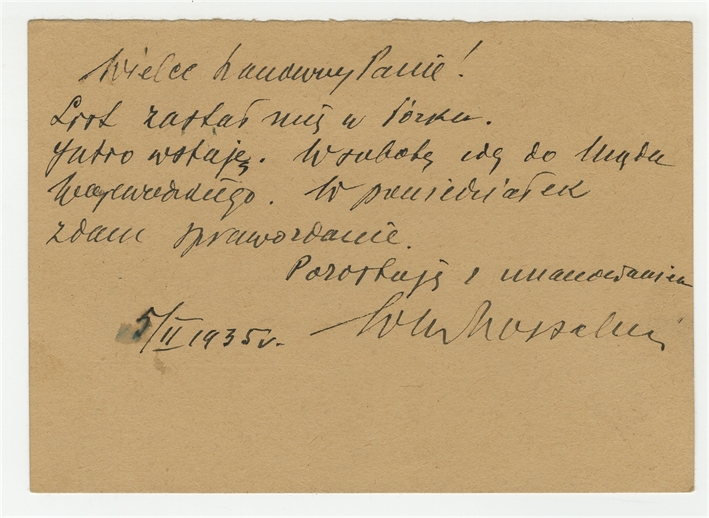 Wielce Szanowny Panie!
List zastał mię w łóżku.
Jutro wstaję. W sobotę idę do Urzędu
Wojewódzkiego. W poniedziałek
zdam sprawozdanie.
Pozostaję z uszanowaniem
5/II 1935 r.